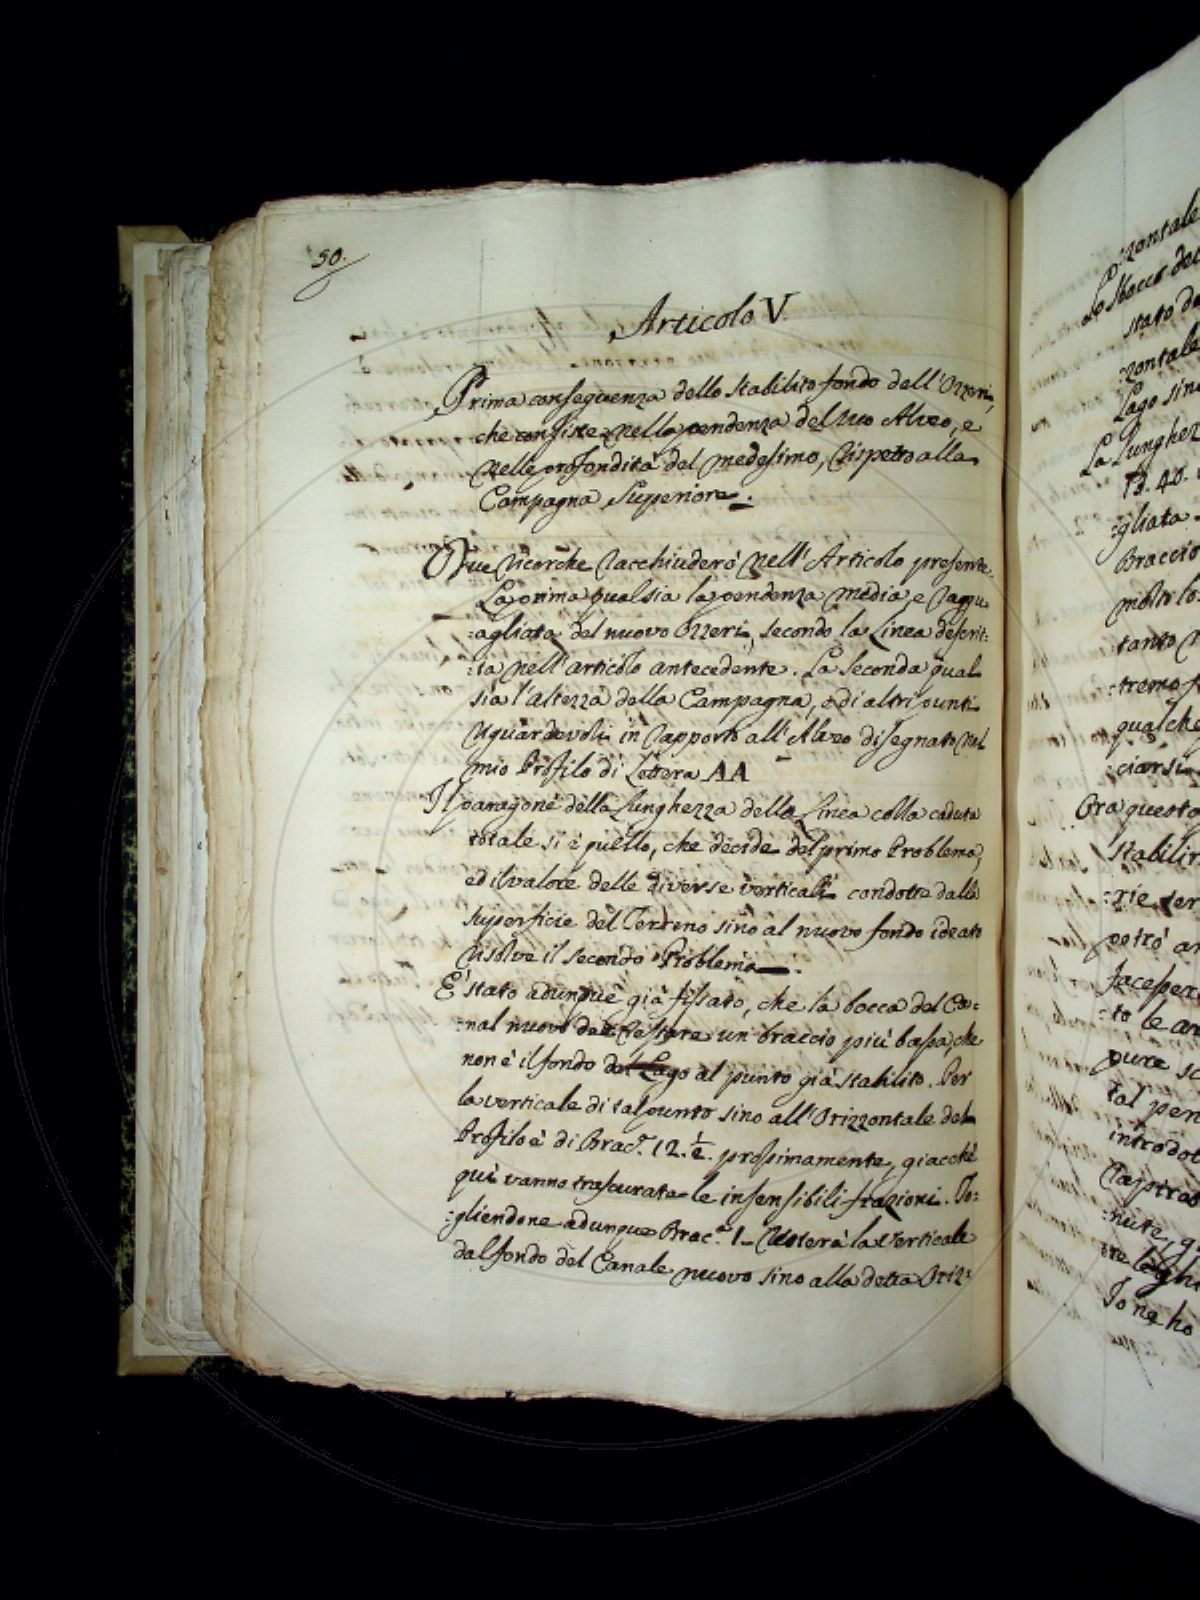 50.
Articolo V.
Prima conseguenza dello stabilito fondo dell'Ozzeri,
che consiste nella pendenza del suo Alveo, e
nelle profondità del medesimo, rispetto alla
Campagna Superiore.
Due ricerche racchiuderò nell'Articolo presente.
La prima qual sia la pendenza media e raggu:
:agliata del nuovo Ozzeri, secondo la Linea descrit:
:ta nell'articolo antecedente. La seconda qual
sia l'altezza della Campagna, e di altri punti
riguardevoli in rapporto all'Alveo disegnato nel
mio Profilo di Lettera AA
Il paragone della Lunghezza della Linea colla caduta
totale si è quello, che decide del primo Problema,
ed il valore delle diverse verticali condotte dalla
superficie del Terreno sino al nuovo fondo ideato
risolve il secondo Problema.
È stato adunque già fissato, che la bocca del Ca:
:nal nuovo dee restare un braccio più bassa, che
non è il fondo del Lago al punto già stabilito. Per
la verticale di tal punto sino all'Orizzontale del
Profilo è di Brac.ª 12. ½. prossimamente, giacchè
qui vanno trascurate le insensibili frazioni. To:
:gliendone adunque Brac.º 1_ resterà la Verticale
dal fondo del Canale nuovo sino alla detta Oriz:
:zontale
Lo sbocco del
stato
:zontale
Lago sino
La Lunghez
:gliata
Braccio
molto
tanto
:tremo
qualche
:ciarsi
Ora questo
stabilir
:rie
potrò
:to le
pure
tal pen
introdot
:nute,
Io ne ho